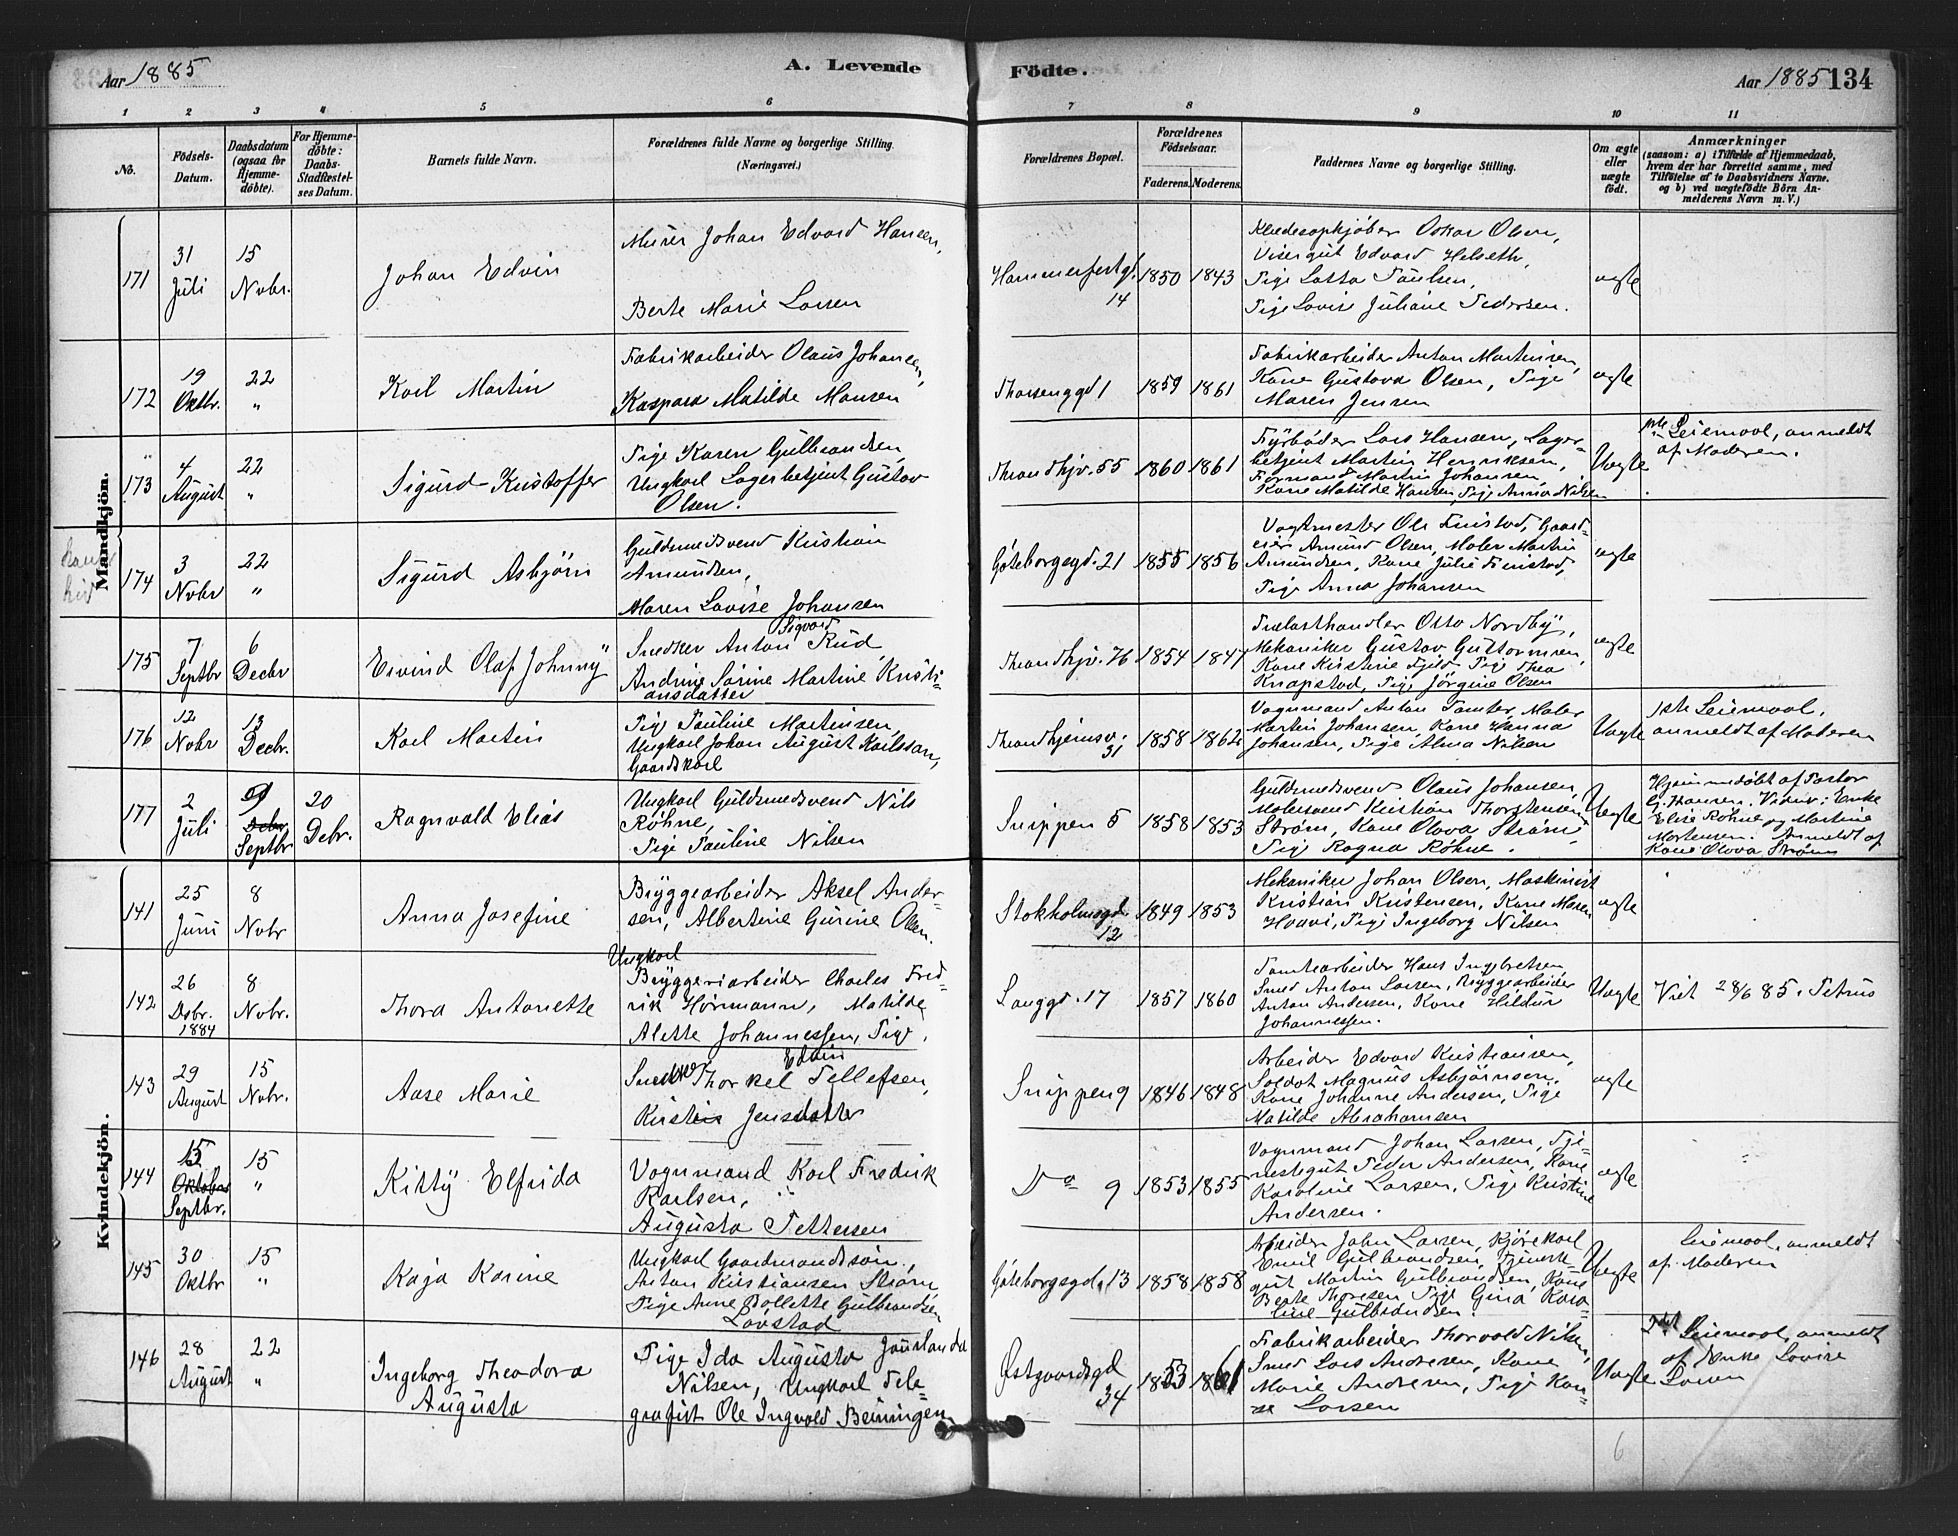 Aar 1885
A. Levende
Födte.
Aar 1885
134
1 2 3 4 5 6 7 8 9 10 11
No.
Födsels-
Datum.
Daabsdatum
(ogsaa for
Hjemme-
døbte).
For Hjemme-
döbte:
Daabs-
Stadfæstel-
ses Datum.
Barnets fulde Navn.
Forældrenes fulde Navne og borgerlige Stilling.
(Næringsvei.)
Forældrenes Bopæl.
Forældrenes
Födselsaar.
Faderens.
Moderens.
Faddernes Navne og borgerlige Stilling.
Om ægte
eller
uægte
födt.
Anmærkninger
(saasom: a) i Tilfælde af Hjemmedaab,
hvem der har forrettet samme, med
Tilføielse af to Daabsvidners Navne.
og b) ved uægtefödte Börn An-
melderens Navn m. V.)
Mandkjön.
171
31
Juli
15
Novbr.
Johan Edvin
Murer Johan Edvard Hansen,
Berte Marie Larsen
Hammerfestgd.
14
1850
1843
Klædesopkjøber Oskar Olsen,
Visergut Edvard Helseth,
Pige Lotta Paulsen,
Pige Lovise Juliane Pedersen.
ægte
172
19
Oktbr.
22
"
Karl Martin
Fabrikarbeider Olaus Johansen,
Kaspara Matilde Hansen
Thorsenggd 1
1859
1861
Fabrikarbeider Anton Martinsen,
Kone Gustava Olsen, Pige
Maren Jensen
ægte
173
4
August
22
"
Sigurd Kristoffer
Pige Karen Gulbrandsen,
Ungkarl Lagerbetjent Gustav
Olsen.
Throndhjv. 55
1860
1861
Fyrbøder Lars Hansen, Lager-
betjent Martin Henriksen,
Formand Martin Johansen,
Kone Matilde Hansen, Pige Anna Nilsen
Uægte
Leiermaal, anmeldt
af Moderen.
174
3
Novbr
22
"
Sigurd Asbjørn
Guldsmedsvend Kristian
Amundsen,
Maren Lovise Johansen
Göteborgsgd. 21
1855
1856
Vagtmester Ole Finstad, Gaard-
eier Amund Olsen, Maler Martin
Amundsen, Kone Julie Finstad,
Pige Anna Johansen
ægte
175
7
Septbr
6
Decbr
Eivind Olaf Johnny
Snedker Anton Sigvard Rud,
Andrine Sørine Martine Kristi-
ansdatter
Throndhjv. 76
1854
1847
Trælasthandler Otto Nordby,
Mekaniker Gustav Guttormsen,
Kone Kristine Fjeld, Pige Thea
Knapstad, Pige Jørgine Olsen
ægte
176
12
Novbr
13
Decbr.
Karl Martin
Pige Pauline Martinsen,
Ungkarl Johan August Karlsson,
Gaardskarl
Throndhjemsv.
31
1858
1862
Vognmand Anton Tomter, Maler
Martin Johansen, Kone Hanna
Johansen, Pige Alma Nilsen
Uægte
1ste Leiermaal,
anmeldt af Moderen
177
2
Juli
9
Septbr
20
Debr.
Ragnvald Elias
Ungkarl Guldsmedsvend Nils
Røhne,
Pige Pauline Nilsen
Snippen 5
1858
1853
Guldsmedsvend Olaus Johansen,
Malersvend Kristian Thorstensen
Strøm, Kone Olava Strøm,
Pige Ragna Røhne.
Uægte
Hjemmedøbt af Pastor
G. Hansen. Vidner: Enke
Elise Röhne og Martine
Mortensen. Anmeldt af
Kone Olava Strøm
Kvindekjön.
141
25
Juni
8
Novbr
Anna Josefine
Bryggearbeider Aksel Ander-
sen, Albertine Gurine Olsen.
Stokholmsgd
12
1849
1853
Mekaniker Johan Olsen, Maskinist
Kristian Kristensen, Kone Maren
Haavi, Pige Ingeborg Nilsen
ægte
142
26
Debr.
1884
8
Novbr.
Thora Antonette
Ungkarl
Bryggeriarbeider Charles Fred-
rik Hørmann, Matilde
Alette Johannessen, Pige.
Langgd. 17
1857
1860
Tomtearbeider Hans Ingebretsen
Smed Anton Larsen, Bryggearbeider
Anton Andersen, Kone Hildur
Johannessen.
Uægte
Viet 28/6 85. Petrus
143
29
August
15
Novbr.
Aase Marie
Snedker Thorkel Edvin Tellefsen,
Kirstin Jensdatter
Snippen 9
1846
1848
Arbeider Edvard Kristiansen,
Soldat Magnus Asbjørnsen,
Kone Johanne Andersen, Pige
Matilde Abrahamsen
ægte
144
15
Oktober
Septbr.
15
"
Kitty Elfrida
Vognmand Karl Fredrik
Karlsen,
Augusta Pettersen
Do 9
1853
1855
Vognmand Johan Larsen, Tje-
nestegut Peder Andersen, Kone
Karoline Larsen, Pige Kristine
Andersen.
ægte
145
30
Oktbr
15
"
Kaja Karine
Ungkarl Gaardmandssøn,
Anton Kristiansen Strøm,
Pige Anne Bollette Gulbrandsen
Løvstad
Göteborgsgd. 13
1858
1858
Arbeider John Larsen, Kjørekarl
Emil Gulbrandsen, Tjeneste-
gut Martin Gulbrandsen, Kone
Berte Thoresen, Pige Gina Karo-
line Gulbrandsen.
Uægte
Leiermaal, anmeldt
af Moderen
146
28
August
22
"
Ingeborg Theodora
Augusta
Pige Ida Augusta
Nilsen, Ungkarl Tele-
grafist Ole Ingvald Beiningen
Østgaardsgd
34
1853
1861
Fabrikarbeider Thorvald Nilsen,
Smed Lars Andersen, Kone
Marie Andersen, Pige Kar-
Larsen
Uægte
Leiermaal, anmeldt
af Enke Lovise
Larsen
6